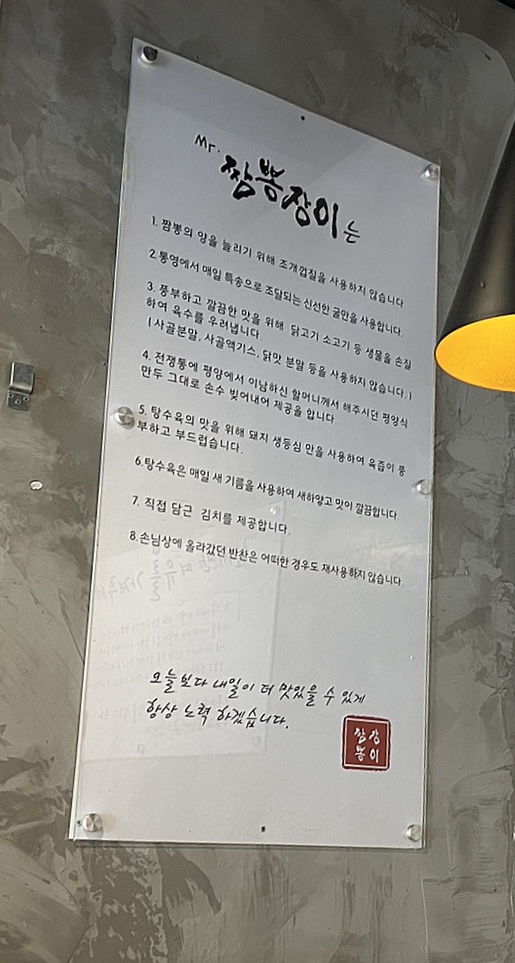 Mr. 짬뽕장이는
1. 짬뽕의 양을 늘리기 위해 조개껍질을 사용하지 않습니다.
2.통영에서 매일 특송으로 조달되는 신선한 굴만을 사용합니다.
3. 풍부하고 깔끔한 맛을 위해 닭고기 소고기 등 생물을 손질
하여 육수를 우려냅니다.
(사골분말, 사골액기스, 닭맛 분말 등을 사용하지 않습니다.)
4. 전쟁통에 평양에서 이남하신 할머니께서 해주시던 평양식
만두 그대로 손수 빚어내어 제공을 합니다.
5. 탕수육의 맛을 위해 돼지 생등심 만을 사용하여 육즙이 풍
부하고 부드럽습니다.
6.탕수육은 매일 새 기름을 사용하여 새하얗고 맛이 깔끔합니다.
7. 직접 담근 김치를 제공합니다.
8.손님상에 올라갔던 반찬은 어떠한 경우도 재사용하지 않습니다.
오늘보다 내일이 더 맛있을 수 있게
항상 노력 하겠습니다.
짬장
뽕이